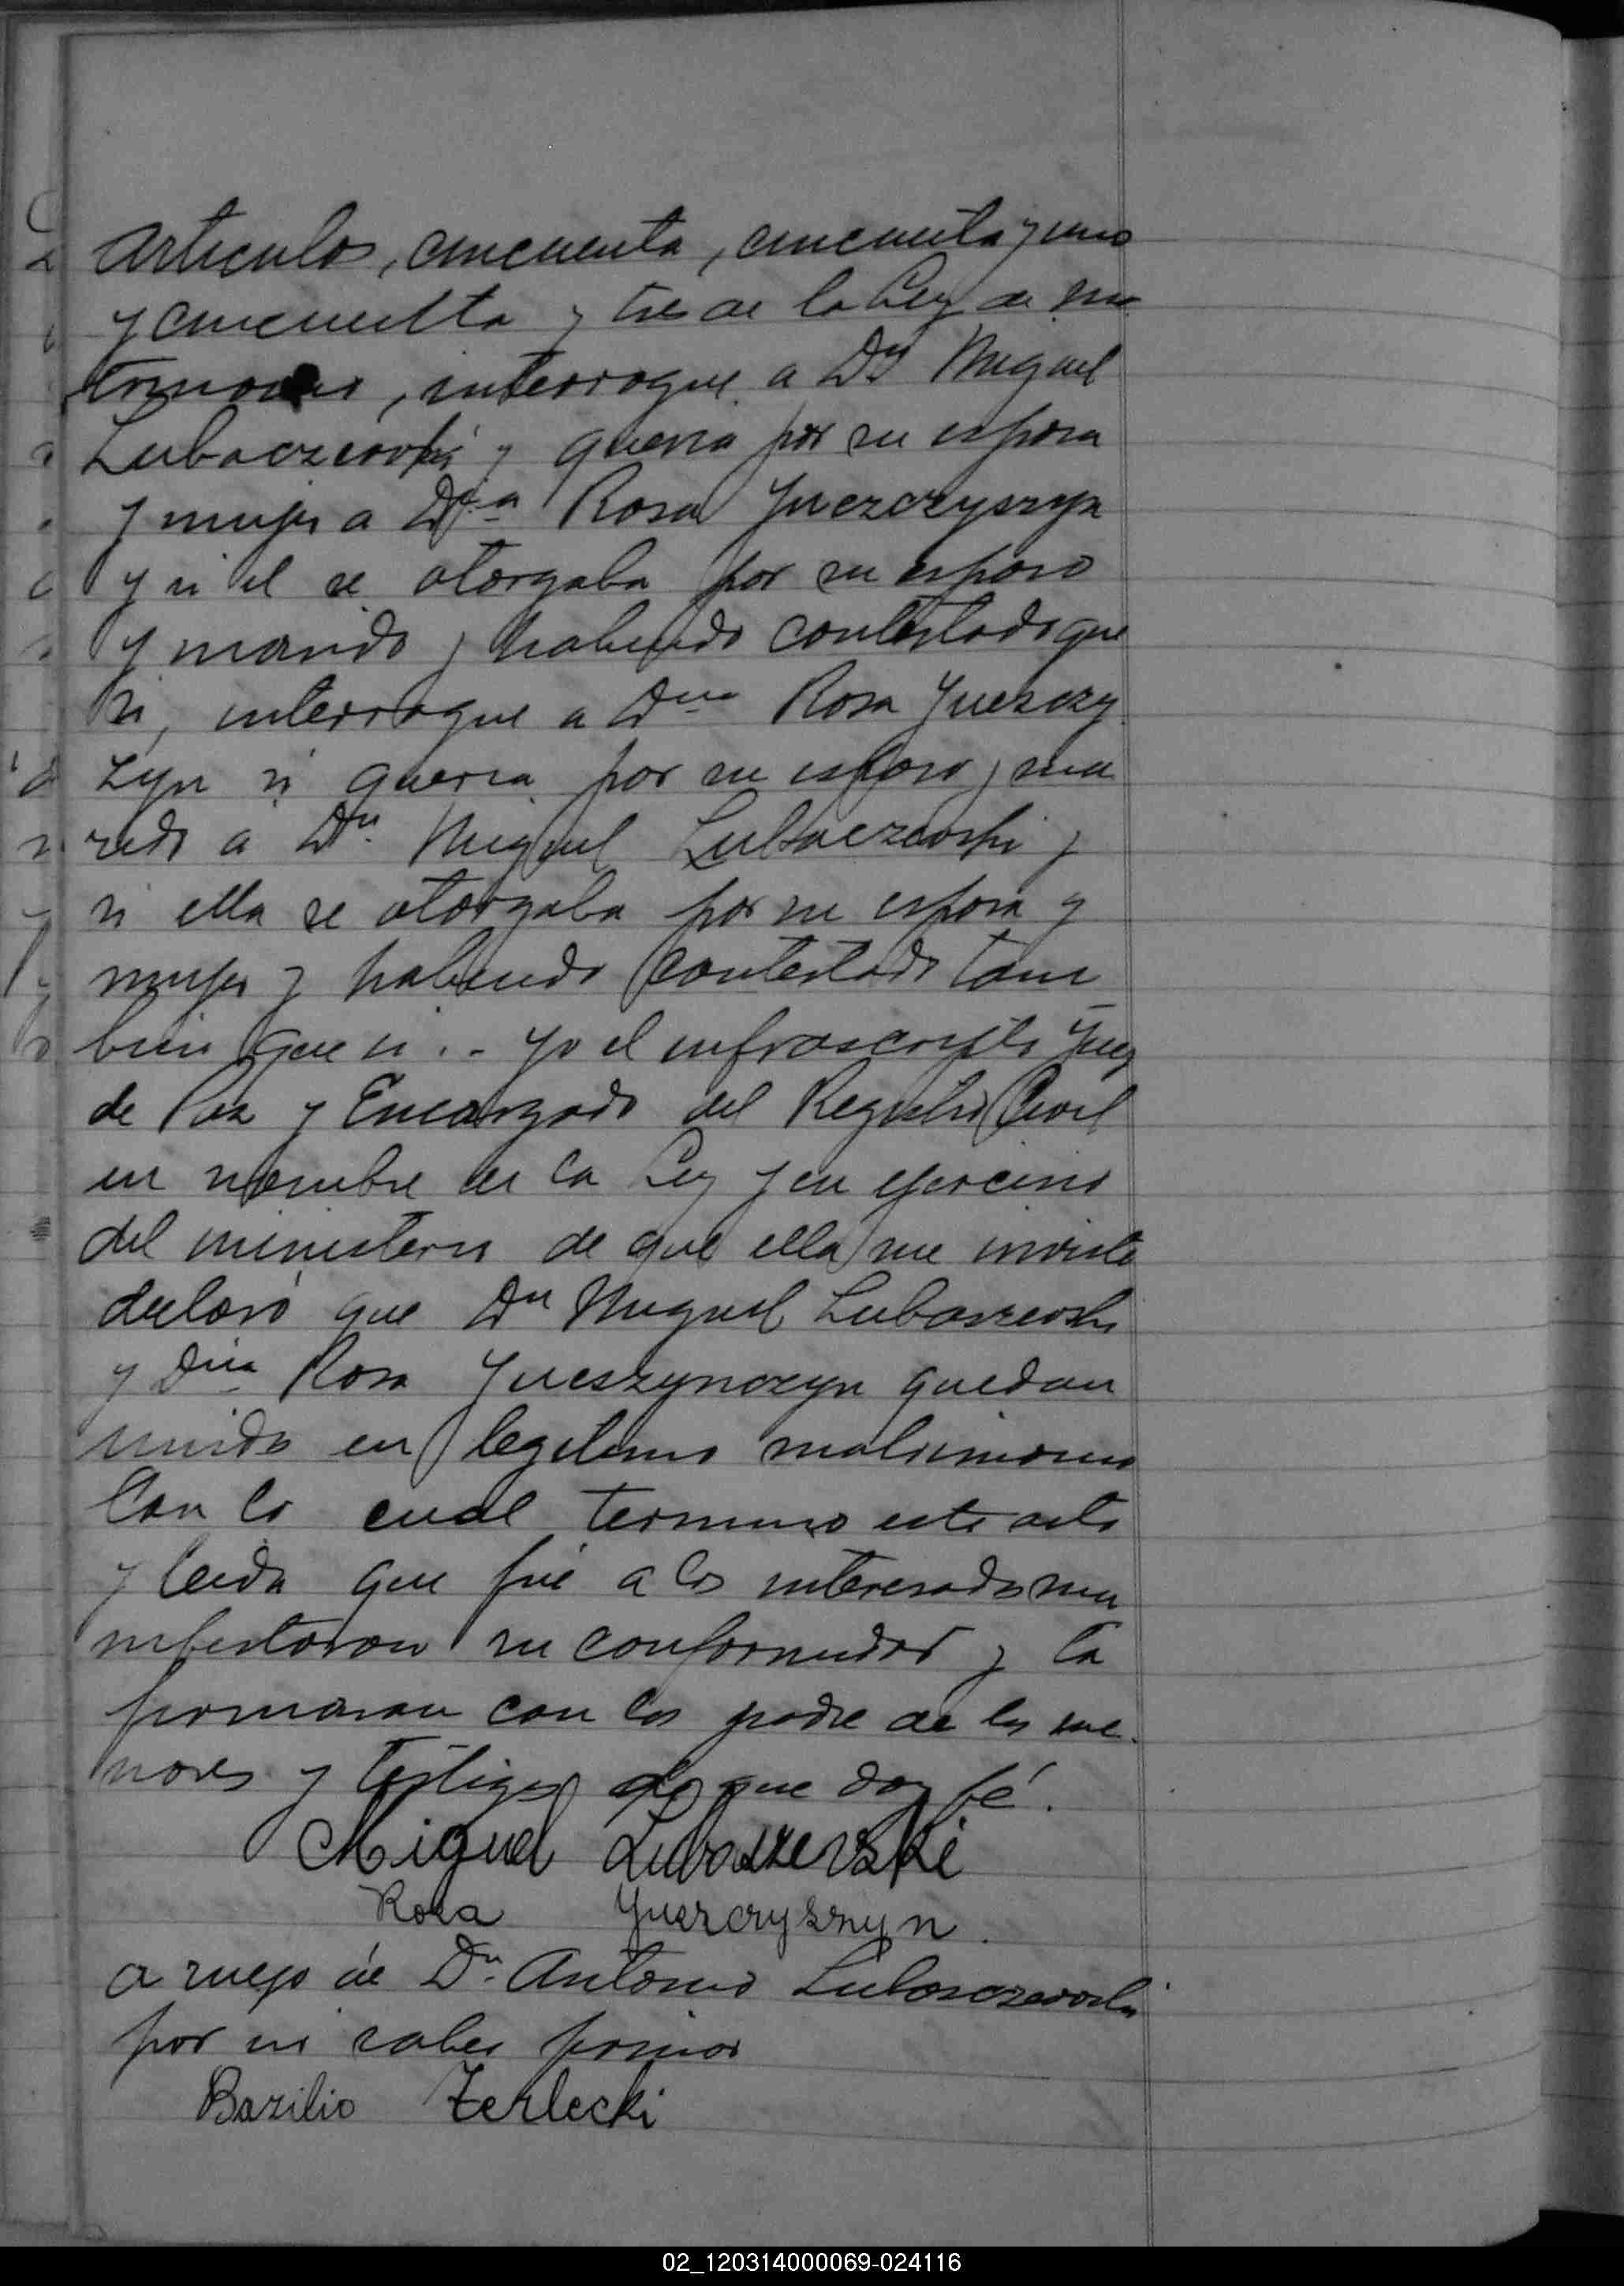 articulos, cincuenta, cincuenta y uno
y cincuenta y tres de la Ley de ma
trimonio, interrogue a Dn Miguel
Lubaczewski y queria por su esposa
y mujer a Dña Rosa Juezczyszyn
y si el se otorgaba por su esposo
y marido y habiendo contestado que
si, interrogue a Dna Rosa Juezczy
zyn si queria por su esposo y ma
rido a Dn Miguel Lubaczewski y
si ella se otorgaba por su esposa y
mujer y habiendo contestado tam
bien que si. - Yo el infrascripto Juez
de Paz y Encargado del Registro Civil
en nombre de la Ley y en ejercicio
del ministerio de que ella me inviste
declaró que Dn Miguel Lubaszewski
y Dna Rosa Jueszynczyn quedan
unido en legitimo matrimonio
Con lo cual termino este acto
y leida que fué a los interesados ma
nifestaron su conformidad y la
firmaron con los padre de los me
nores y testigos de que doy fé.
Miguel Lubaszevski
Rosa Juezczyszyn.
a ruego de Dn. Antonio Lubasczewski
por no saber firmar
Bazilio Terlecki
02_120314000069-024116